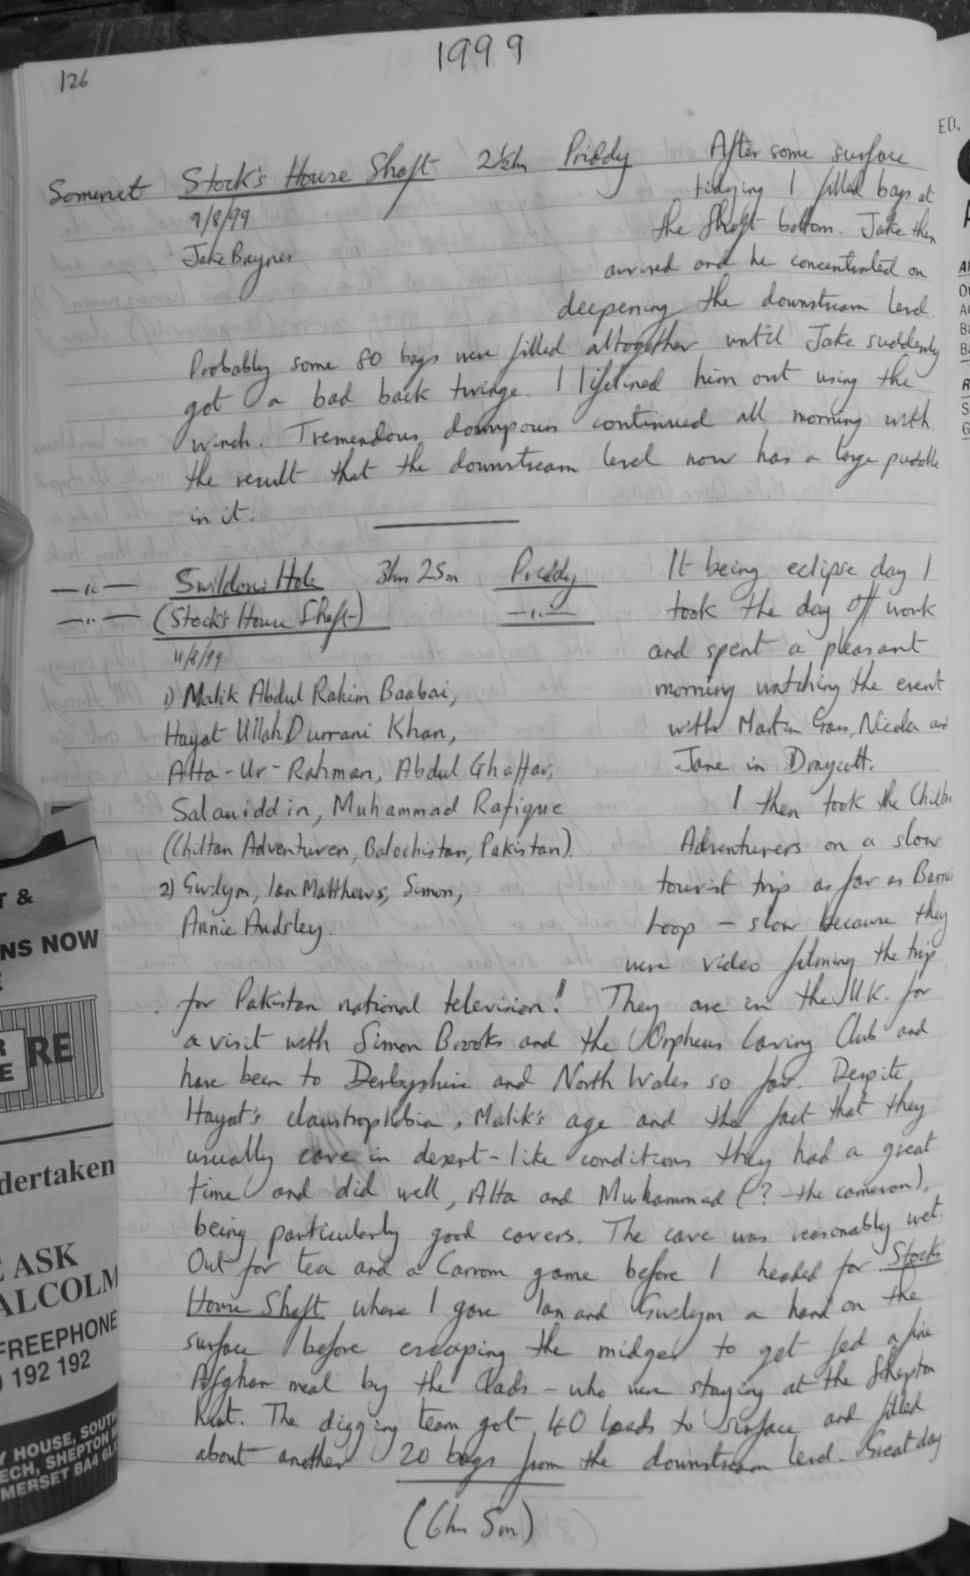 1999
126
Somerset Stock's House Shaft 2½hrs Priddy After some surface
9/8/99 tidying I filled bags at
the Shaft bottom. Jake then
Jake Baynes arrived and he concentrated on
deepening the downstream level.
Probably some 80 bags were filled altogether until Jake suddenly
got a bad back twinge. I lifelined him out using the
winch. Tremendous downpours continued all morning with
the result that the downstream level now has a large puddle
in it.
—"— Swildon's Hole 3hrs 25m Priddy It being eclipse day I
—"— (Stock's House Shaft) —"— took the day off work
11/8/99 and spent a pleasant
1) Malik Abdul Rahim Baabai, morning watching the event
Hayat Ullah Durrani Khan, with Martin Grass, Nicola and
Atta-Ur-Rahman, Abdul Ghaffar, Jane in Draycott.
Salauiddin, Muhammad Rafique I then took the Chiltan
(Chiltan Adventurers, Balochistan, Pakistan). Adventurers on a slow
2) Gwilym, Ian Matthews, Simon, tourist trip as far as Barnes
Annie Audsley. Loop – slow because they
were video filming the trip
for Pakistan national television! They are in the U.K. for
a visit with Simon Brooks and the Orpheus Caving Club and
have been to Derbyshire and North Wales so far. Despite
Hayat's claustrophobia, Malik's age and the fact that they
usually cave in desert-like conditions they had a great
time and did well, Atta and Muhammad (? – the cameron),
being particularly good cavers. The cave was reasonably wet.
Out for tea and a Carrom game before I headed for Stocks
House Shaft where I gave Ian and Gwilym a hand on the
surface before escaping the midges to get fed a fine
Afghan meal by the lads – who were staying at the Shepton
Hut. The digging team got 40 loads to surface and filled
about another 20 bags from the downstream level. Great day
(6hrs 5m)
ED.
T &
NS NOW
RE
dertaken
E ASK
ALCOLM
FREEPHONE
192 192
Y HOUSE, SOUT
ECH, SHEPTON
MERSET BA4